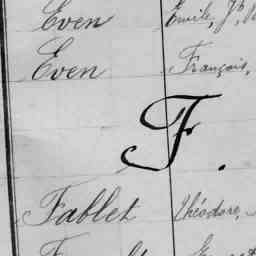 Even Emile, Jh,
Even François,
F.
Fablet Théodore,